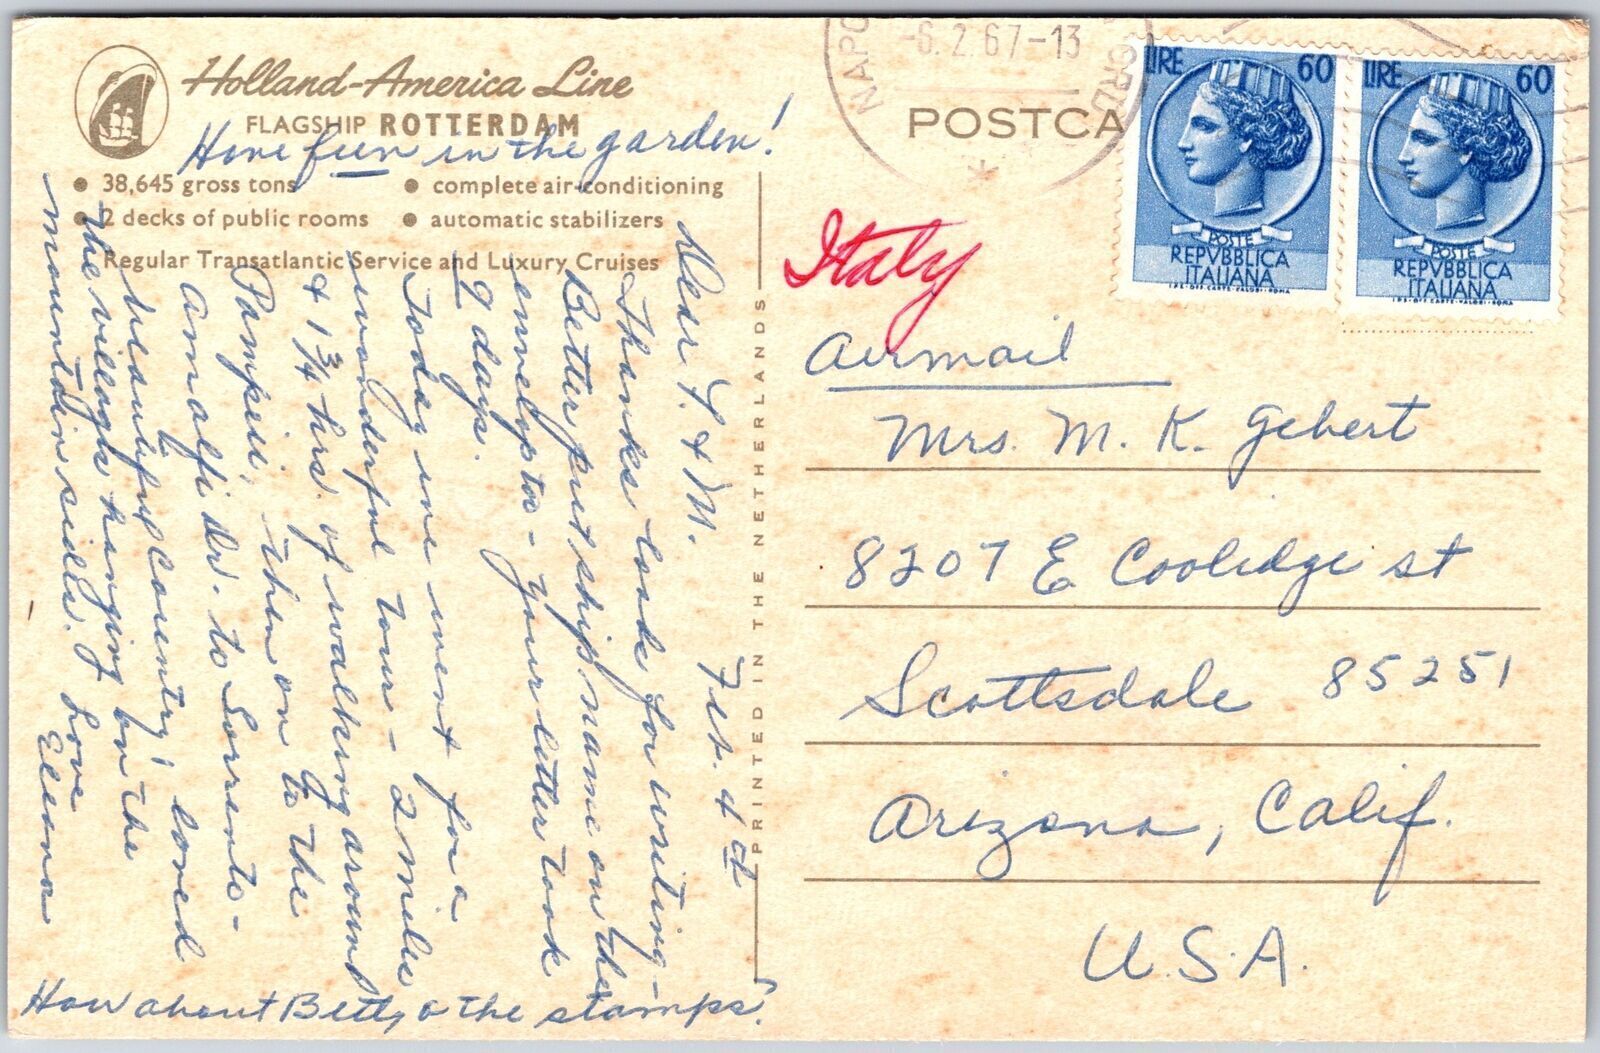 Holland-America Line
FLAGSHIP ROTTERDAM
Have fun in the garden!
● 38,645 gross tons ● complete air-conditioning
● 2 decks of public rooms ● automatic stabilizers
Regular Transatlantic Service and Luxury Cruises
Feb. 4th
Dear Y. & M.
Thanks loads for writing -
Better put ship name on the
envelop too - your letter took
9 days.
Today we went for a
wonderful tour - 2 miles
& 1 3/4 hrs. of walking around
Pampeii, then on to the
Amalfi Dr. to Sorrento -
beautiful country; loved
the villages hanging on the
mountain sides. Love
Elenor
How about Betty & the stamps?
PRINTED IN THE NETHERLANDS
POSTCA
-6.2.67-13
LIRE 60
POSTE
REPVBBLICA
ITALIANA
I.P.S.-OFF. CARTE-VALORI-ROMA
LIRE 60
POSTE
REPVBBLICA
ITALIANA
I.P.S.-OFF. CARTE-VALORI-ROMA
Italy
Airmail
Mrs. M. K. Gebert
8207 E Coolidge st
Scottsdale 85251
Arizona, Calif.
U.S.A.